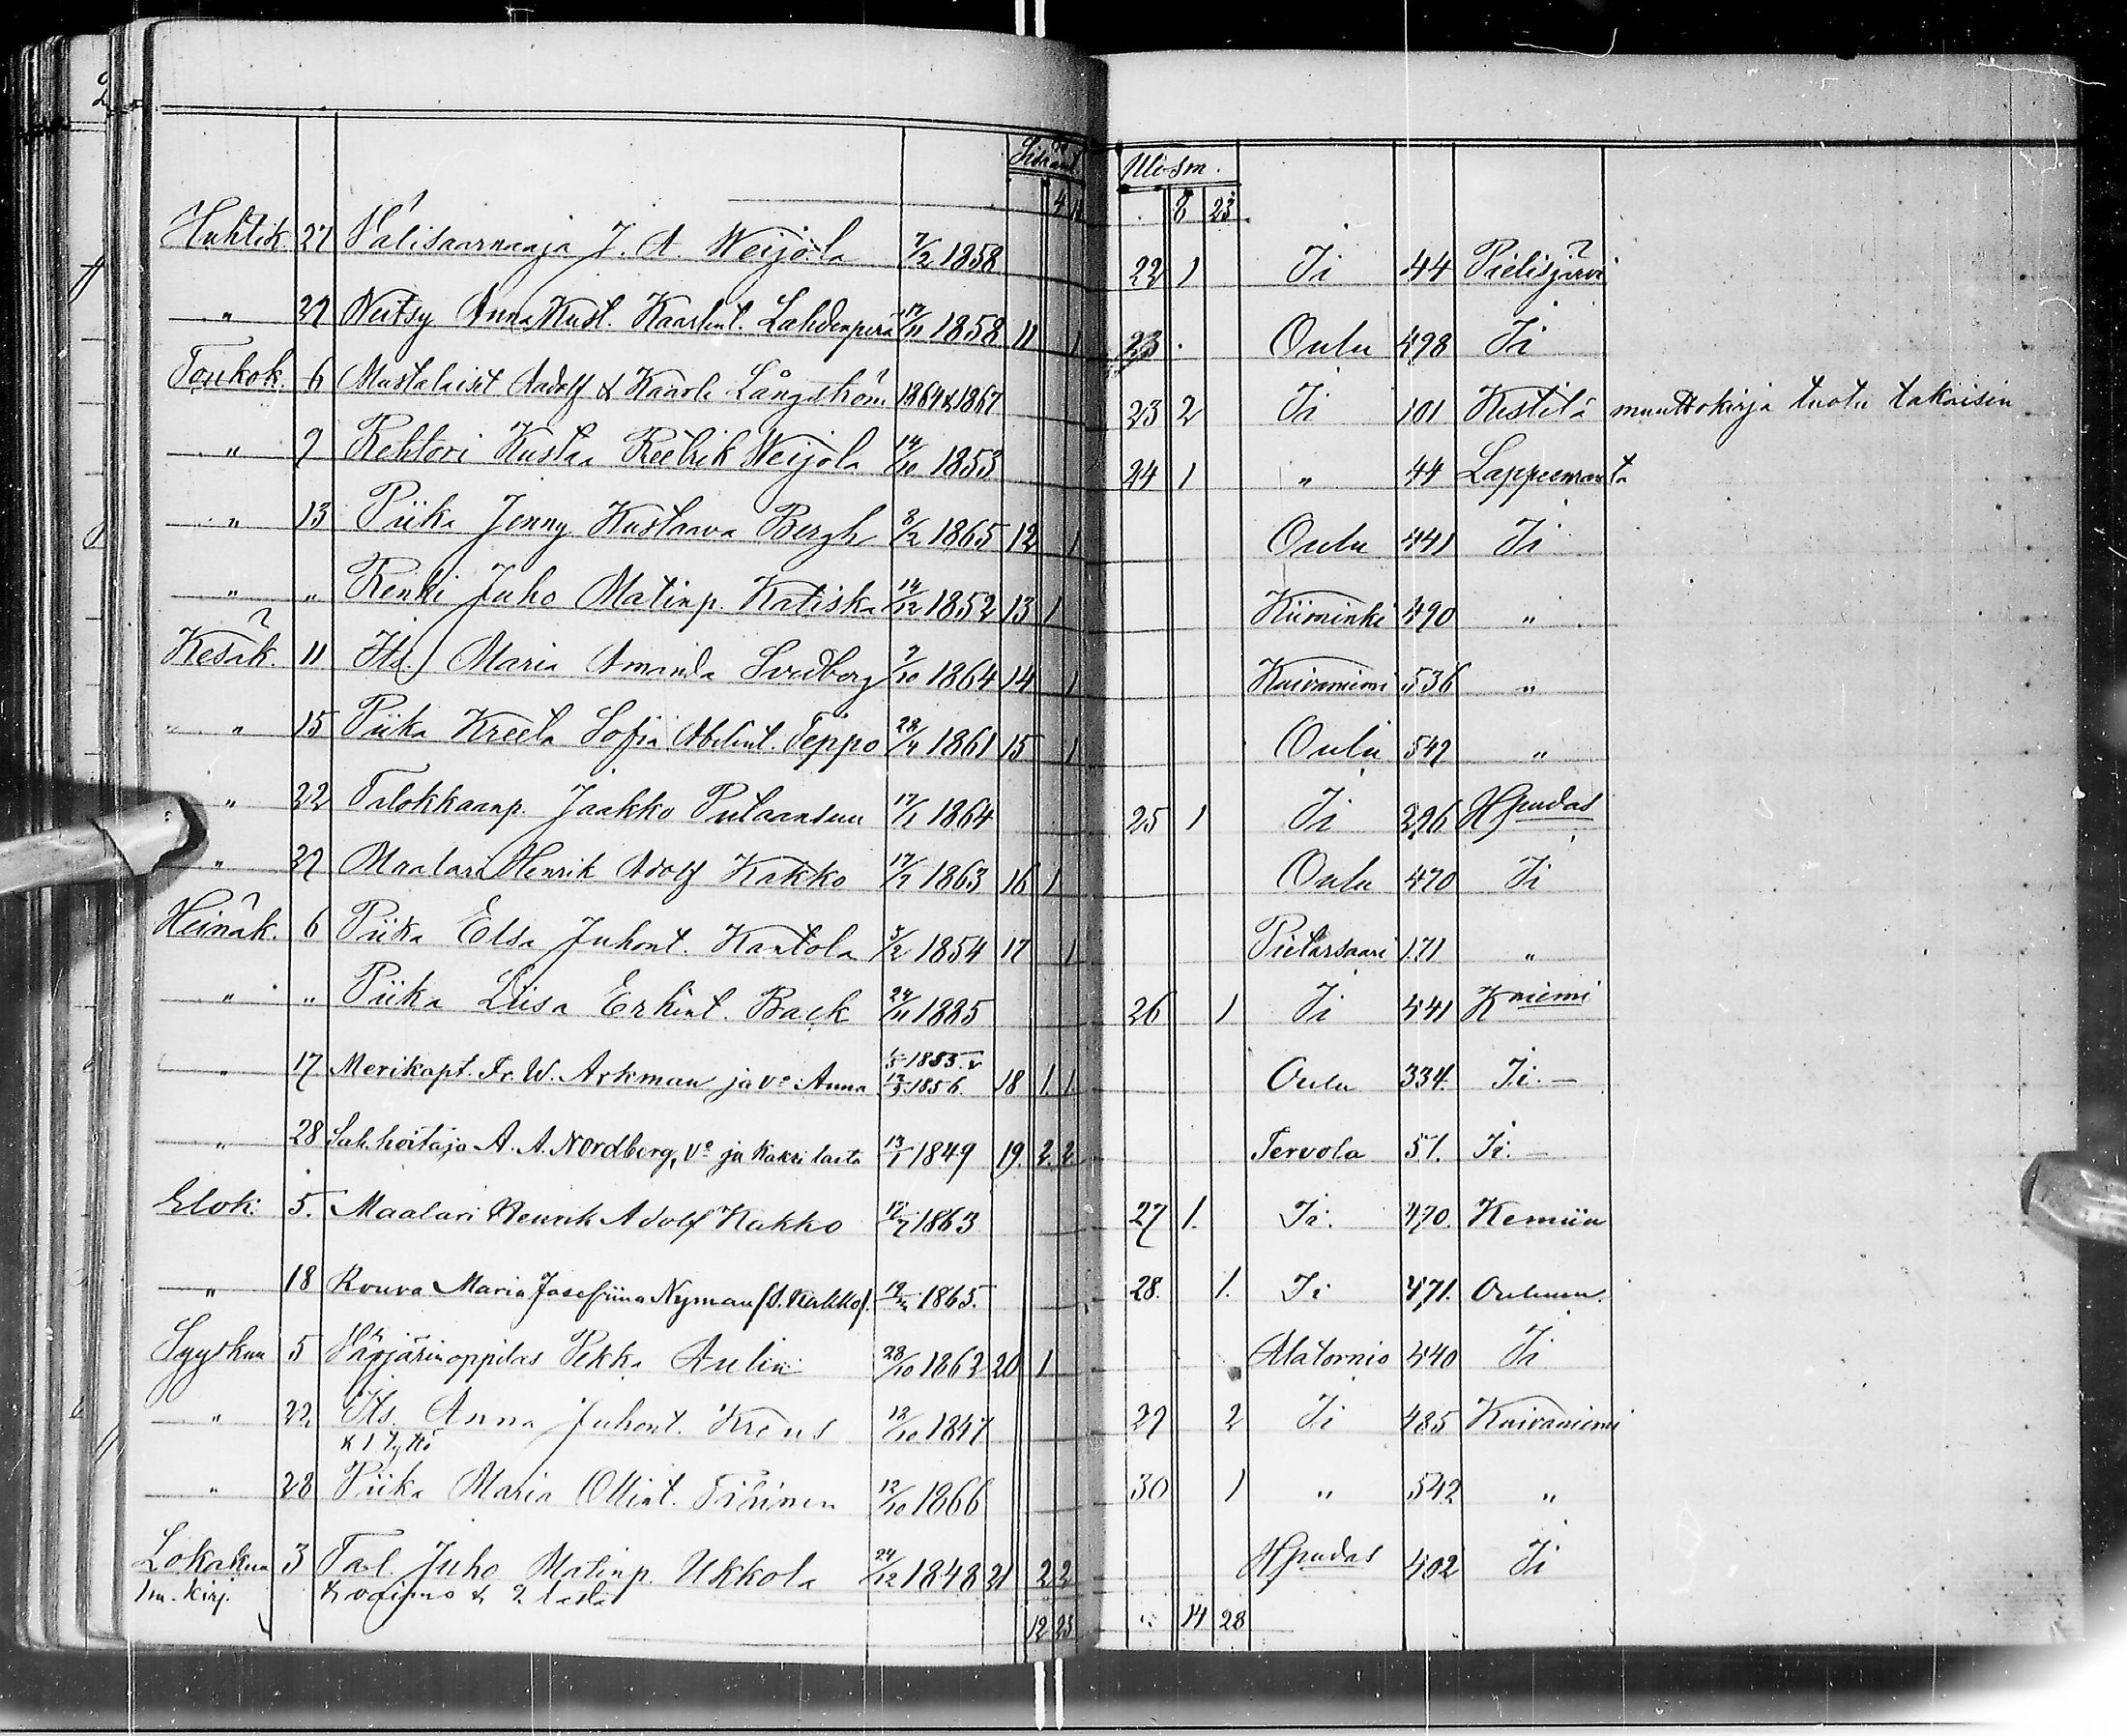 Ulosm.
4
8 23
Huhtik. 27 Välisaarnaaja J. A. Weijola 7/2 1858 22 1 Ii 44 Pielisjärvi
" 29 Neitsy Anna Kust. Kaarlent. Lahdenperä 17/11 1858 11 1 23 Oulu 498 Ii
Toukok. 6 Mustalaiset Aadolf & Kaarle Långström 1864 & 1867 23 2 Ii 101 Kestilä muuttokirja tuotu takaisin
" 9 Rehtori Kustaa Reetrik Weijola 14/10 1853 24 1 " 44 Lappeenranta
" 13 Piika Jenny Kustaava Bergh 8/2 1865 12 1 Oulu 441 Ii
" " Renki Juho Matinp. Katiska 14/12 1852 13 1 Kiiminki 490 "
Kesäk. 11 Its. Maria Amanda Svedberg 9/10 1864 14 1 Kuivaniemi 536 "
" 15 Piika Kreeta Sofia Abelint. Teppo 28/4 1861 15 1 Oulu 542 "
" 22 Talokkaanp. Jaakko Putaansuu 17/1 1864 25 1 Ii 296 Hpudas
" 29 Maalari Henrik Adolf Kakko 17/7 1863 16 1 Oulu 470 Ii
Heinäk. 6 Piika Elsa Juhont. Kantola 5/2 1854 17 1 Pietarsaari 171 "
" " Piika Liisa Erkint. Back 24/11 1885 26 1 Ii 441 Kniemi
" 17 Merikapt. Fr. W. Arkman ja vo Anna 1853. 1856. 18 1. 1 Oulu 334. Ii. —
" 28 Sah. hoitaja A. A. Nordberg, vo ja kaksi lasta 13/1 1849 19. 2. 2 Tervola 51. Ii. —
Elok. 5. Maalari Henrik Adolf Kakko 17/7 1863 27 1. Ii. 470. Kemiin
" 18 Rouva Maria Josefiina Nyman 1865. 28. 1. Ii 471. Ouluun.
Syyskuu 5 Värjärinoppilas Pekka Aulin 28/10 1862 20 1 Alatornio 440 Ii
" 22 Its. Anna Juhont. Krens 12/10 1847 29 2 Ii 485 Kuivaniemi
& 1 tyttö
" 28 Piika Maria Ollint. 12/10 1866 30 1 " 542 "
Lokakuu 3 Tal. Juho Matinp. Ukkola 24/12 1848 21 2 2 Hpudas 402 Ii
1 m. kirj. & vaimo & 2 lasta
12 23 14 28